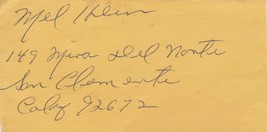 Mel
149 Mira Del Norte
San Clemente
Calif 92672